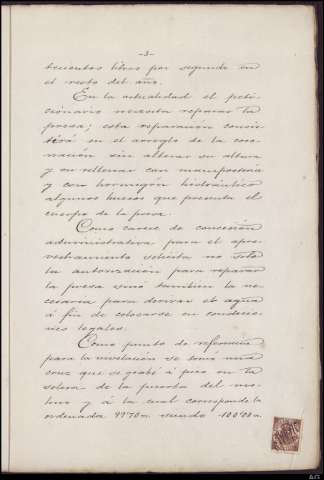 -3-
trescientos litros por segundo en
el resto del año.
En la actualidad el peti-
cionario necesita reparar la
presa; esta reparación consis-
tirá en el arreglo de la coro-
nación sin alterar su altura
y en rellenar con mampostería
y con hormigón hidráulico
algunos huecos que presenta el
cuerpo de la presa.
Como carece de concesión
administrativa para el apro-
vechamiento solicita no solo
la autorización para reparar
la presa sinó tambien la ne-
cesaria para derivar el agua
á fin de colocarse en condicio-
nes legales.
Como punto de referencia
para la nivelación se tomó una
cruz que se grabó á pico en la
solera de la puerta del mo-
lino y á la cual corresponde la
ordenada 99'70 m. siendo 100'00 m.